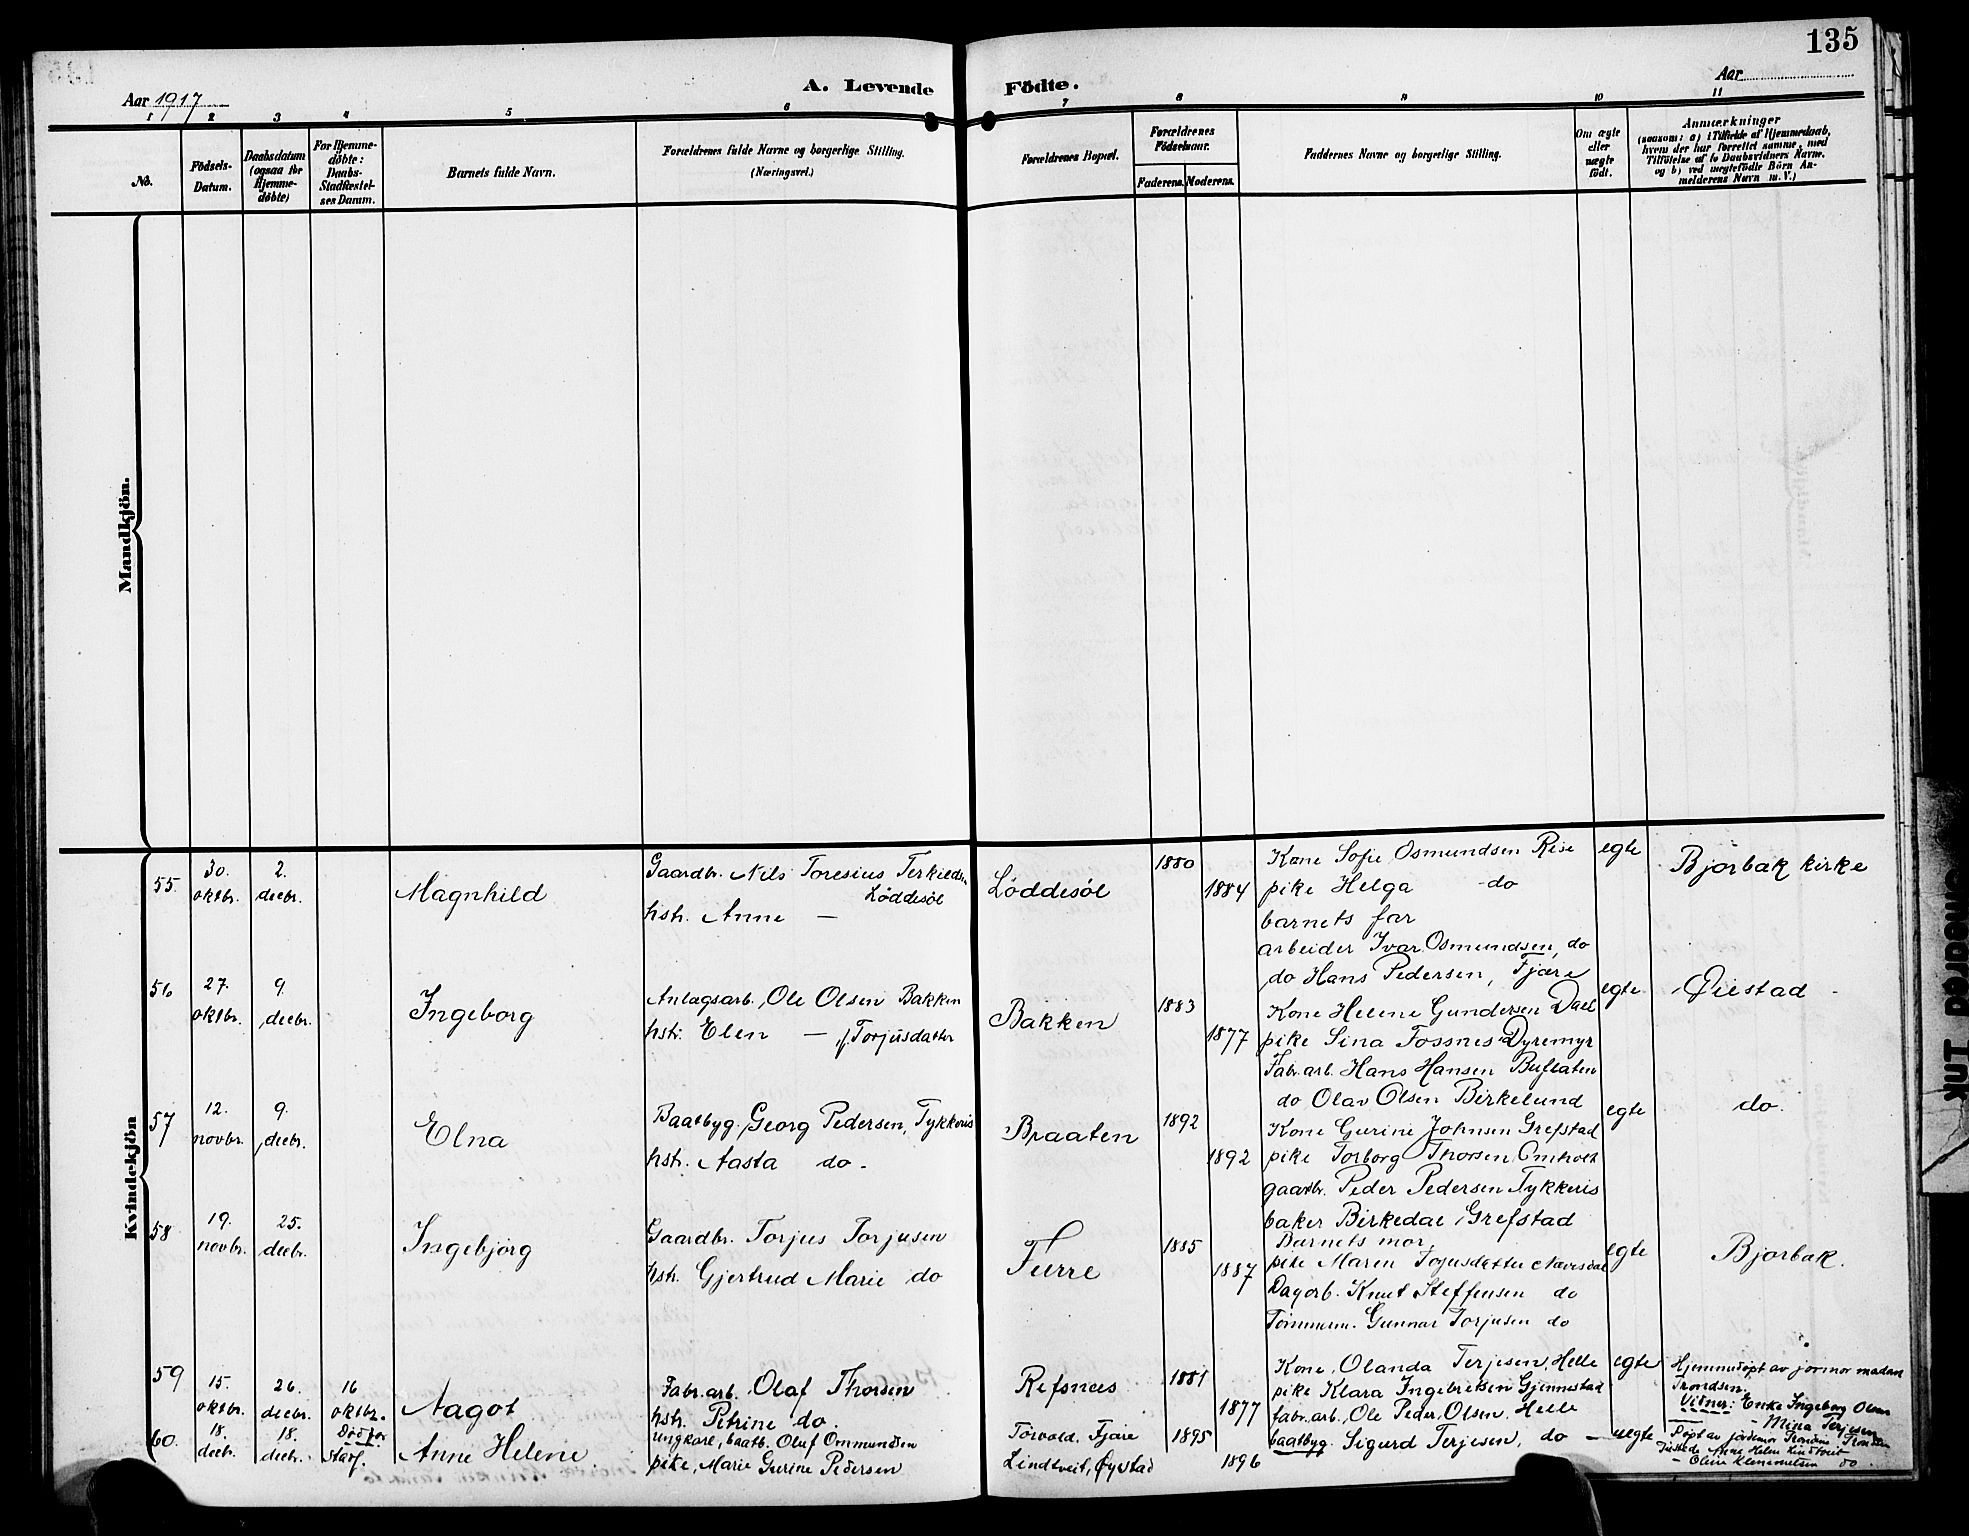 135
Aar 1917
A. Levende Födte.
Aar
1 2 3 4 5 6 7 8 9 10 11
No.
Födsels-Datum.
Daabsdatum (ogsaa for Hjemme-døbte)
For Hjemme-døbte: Daabs-Stadfæstel-ses Datum.
Barnets fulde Navn.
Forældrenes fulde Navne og borgerlige Stilling. (Næringsvei.)
Forældrenes Bopæl.
Forældrenes Födselsaar.
Faderens. Moderens.
Faddernes Navne og borgerlige Stilling.
Om ægte eller uægte födt.
Anmærkninger
(saasom: a) i Tilfælde af Hjemmedaab,
hvem der har forrettet samme, med
Tilföielse af to Daabsvidners Navne,
og b) ved uægtefödte Börn An-
melderens Navn m. V.)
Mandkjön.
Kvindekjön
55. 30. oktbr. 2. decbr. Magnhild
Gaardbr. Nils Toresius Terkilds.
Løddesøl
hstr. Anne —
Løddesøl 1880 1884
Kone Sofie Osmundsen Rise
pike Helga - do
barnets far
arbeider Ivar Osmundsen, do
do Hans Pedersen, Fjære
egte
Bjorbak kirke
56 27. oktbr. 9. decbr. Ingeborg
Anlagsarb. Ole Olsen Bakken
hstr. Elen — f. Torjusdatter
Bakken 1883 1877
Kone Helene Gundersen Dael
pike Sina Fossnes Dyremyr
Fabr.arb. Hans Hansen Buflaten
do Olav Olsen Birkelund
egte
Øiestad
57 12. novbr. 9. decbr. Elna
Baatbyg. Georg Pedersen, Tykkeris
hstr. Aasta do.
Braaten 1892 1892
Kone Gurine Johnsen Grefstad
pike Torborg Thorsen Omholt
gaardbr. Peder Pedersen Tykkeris
baker Birkedal, Grefstad
egte
do.
58 19. novbr. 25. decbr. Ingebjørg
Gaardbr. Torjus Torjusen
hstr. Gjertrud Marie do
Furre 1885 1887
Barnets mor,
pike Maren Tojusdatter
Dagarb. Knut Steffensen do
Tømmerm. Gunnar Torjusen do
egte
Bjorbak.
59 15. oktbr. 26. decbr. 16 oktbr. Aagot
Fabr.arb. Olaf Thorsen
hstr. Petrine do.
Refsnes 1881 1877
Kone, Olanda Terjesen, Helle
pike Klara Ingebretsen Gjennestad
fabr.arb. Ole Peder Olsen, Helle
baatbyg. Sigurd Terjesen, do
egte
Hjemmedøpt av jormor madam
Trondsen.
Vitner: Enke Ingeborg Olsen
- Mina Terjesen
60. 18. decbr. 18. decbr. Død før Stadf. Anne Helene.
ungkarl, baatb. Oluf Ommundsen
pike, Marie Gurine Pedersen
Torvold, Fjære 1895
Lindtveit, Øystad 1896
— uegte
Døpt av jordemor
Anne Helene Lindtveit
- Oline Klemmetsen do